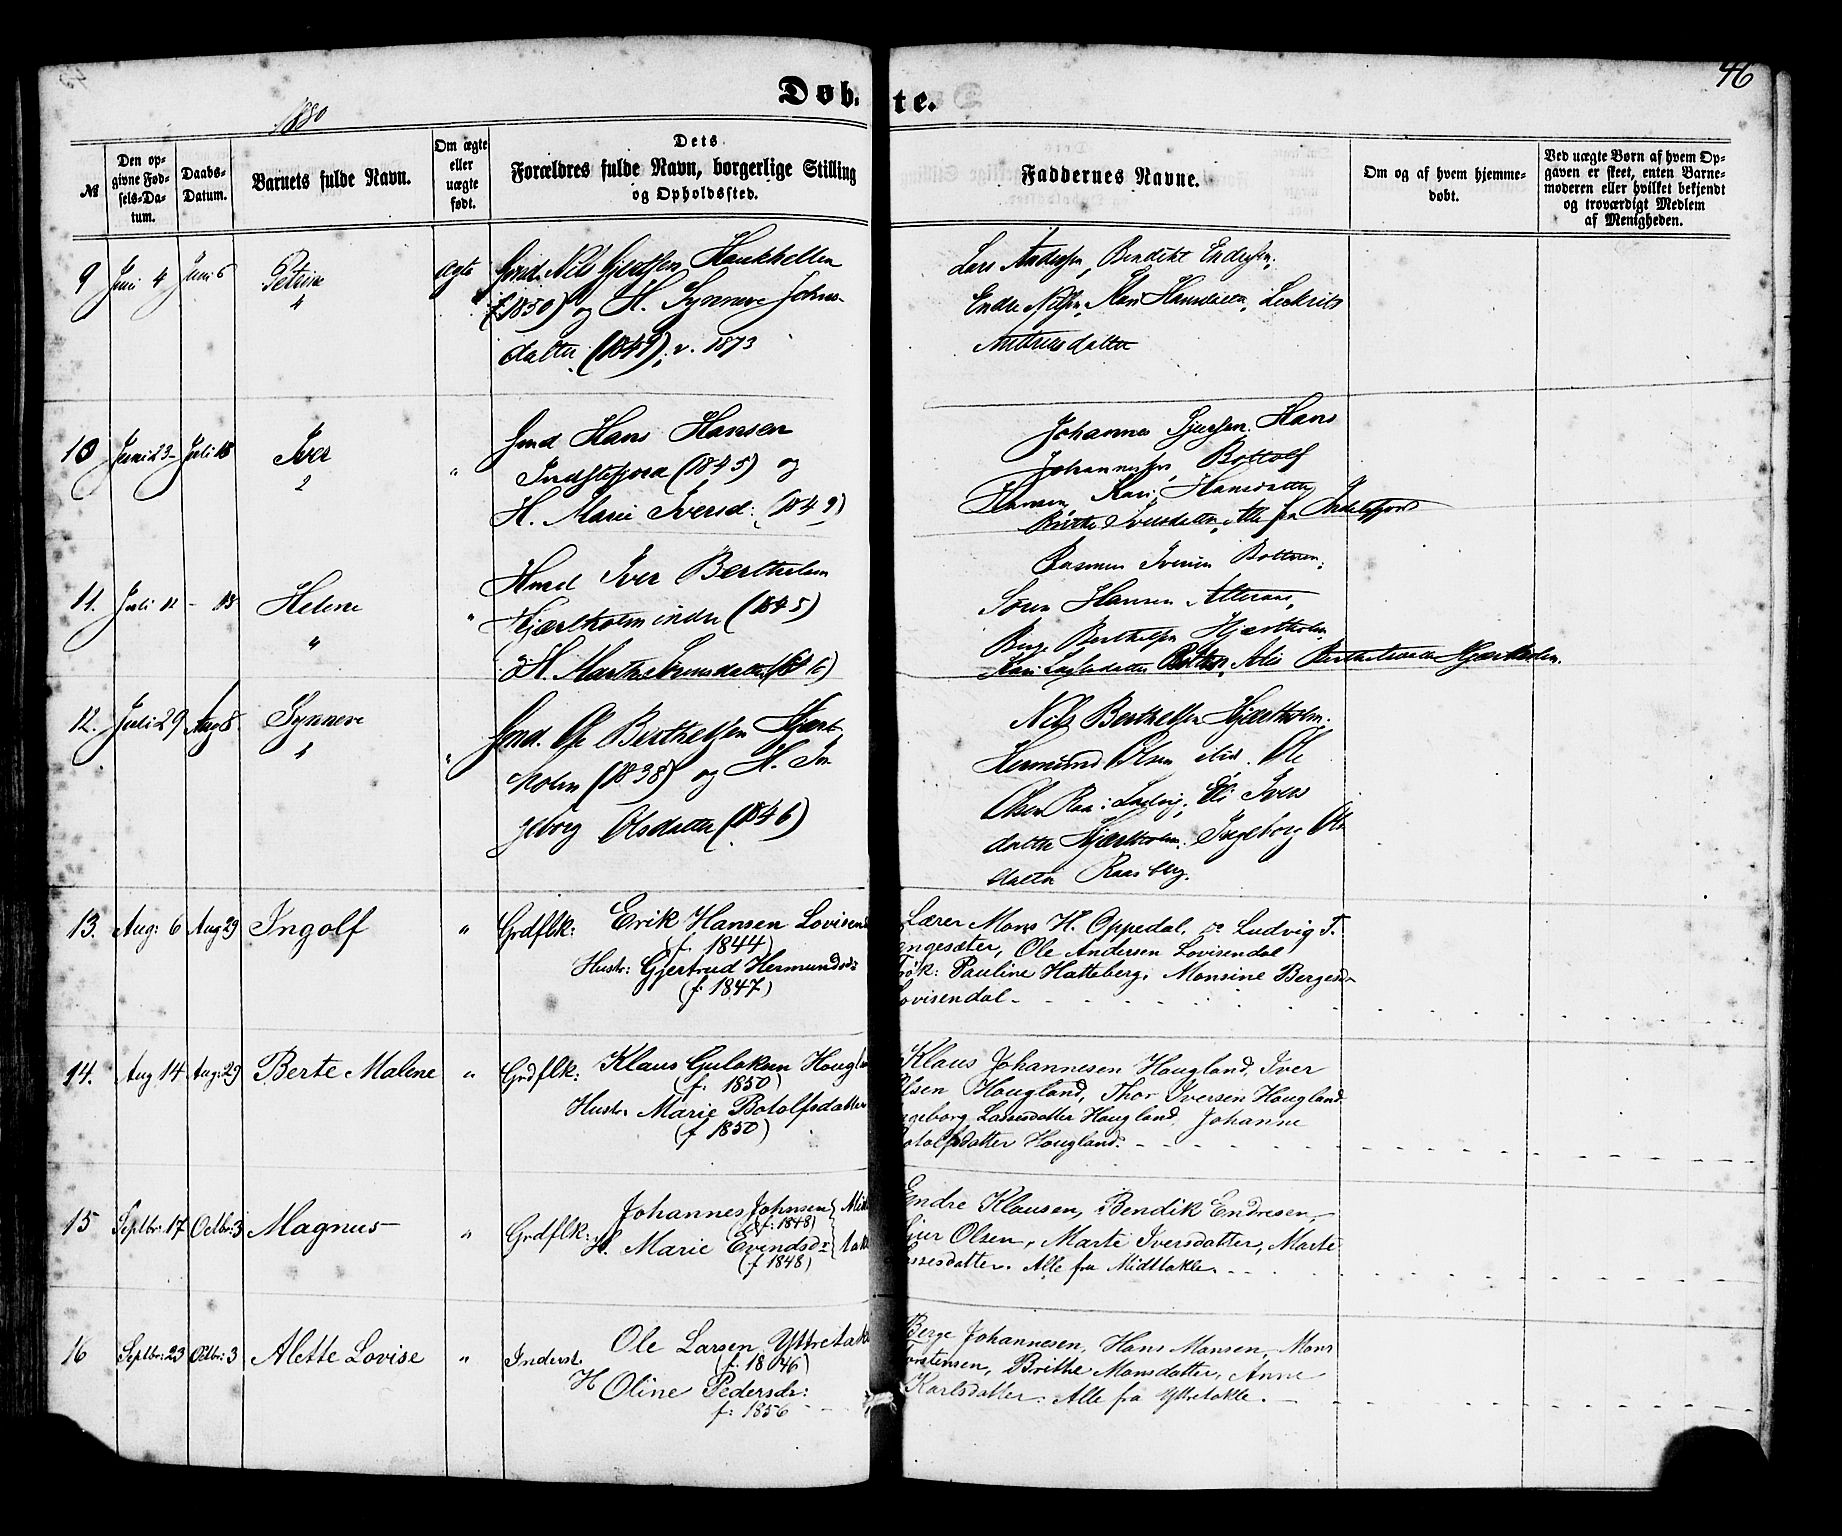 46
Døb.
te.
1880
№
Den op-
givne Fød-
sels-Da-
tum.
Daabs-
Datum.
Barnets fulde Navn.
Om ægte
eller
uægte
født.
Dets
Forældres fulde Navn, borgerlige Stilling
og Opholdssted.
Faddernes Navne.
Om og af hvem hjemme-
døbt.
Ved uægte Børn af hvem Op-
gaven er skeet, enten Barne-
moderen eller hvilket bekjendt
og troværdigt Medlem
af Menigheden.
9 Juni 4 Juni 6 Petrine ægte Nils
(f 1850) og H. Synneve Johns-
datter (1849), v. 1873
Lars Andersen, Bendikt Endresen,
Endre Nilsen, Kari
datter
10 Juni 23 Juli 18 Iver 2 " Hans Hansen
(1845) og
H. Marie Iversd: (1849)
Johannes Hans
Johannessen, Bottolf
Hansen, Kari Hansdatter
Brithe Iversdatter, Alle fra Indrefjord
11. Juli 11 - 18 Helene " " Iver Berthelsen
Hjærtholm indre (1845)
& H. Marthe
Rasmus Iversen Botnen,
Søren Hansen
Berge Berthelsen Hjærtholm
Kari Hjærtholm.
12. Juli 29 Aug 8. Synneve 4 " Ole Berthelsen Hjært-
holm (1838) og H. In
geborg Olsdatter (1846)
Nils Berthelsen Hjærtholm,
Hermund Olsen Ole
Olsen Ivers
datter Hjærtholm. Ingeborg Ols
datter
13. Aug: 6 Aug 29 Ingolf " Grdflk: Erik Hansen Lovisend
(f. 1844)
Hustr: Gjertrud Hermundsdr
(f. 1847)
Lærer Mons H. Oppedal, Ludvig T.
engesæter, Ole Andersen Lovisendal
Pauline Hatteberg, Monsine Bergesdr
ovisendal -
14. Aug 14 Aug: 29 Berte Malene " Grdflk: Klaus Gulaksen Hougla
(f. 1850)
Hustr Marie Botolfsdatter
(f 1850)
Klaus Johannesen Hougland, Iver
Olsen Hougland, Thor Iversen Hougland
ngeborg Lassesdatter Hougland, Johanne
otolfsdatter Hougland. -
15 Septbr: 17 Octbr: 3 Magnus - " Grdflk: Johannes Johnsen Midt
(f: 1848)
H. Marie Evindsdr takl
(f 1848)
Endre Klausen, Bendik Endresen,
Olsen, Marte Iversdatter, Marte
assesdatter. Alle fra Midttakle.
16 Septbr: 23 Octbr: 3 Alette Lovise " Inderst. Ole Larsen Yttretakl
(f. 1846)
H Oline Pedersdr:
f: 1856
Berge Johannesen, Hans Mansen, Mons
orstensen, Brithe Monsdatter, Anne
Karlsdatter. Alle fra Yttretakle.